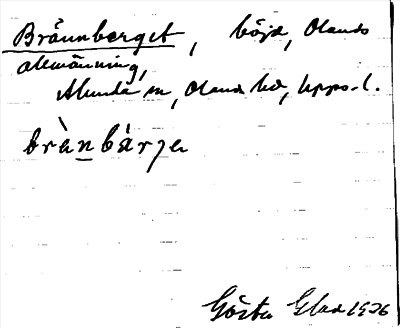 Brännberget, höjd, Olands
allmänning,
Alunda sn, Olands hd, Upps. l.
brànbárje
Gösta Glad 1926